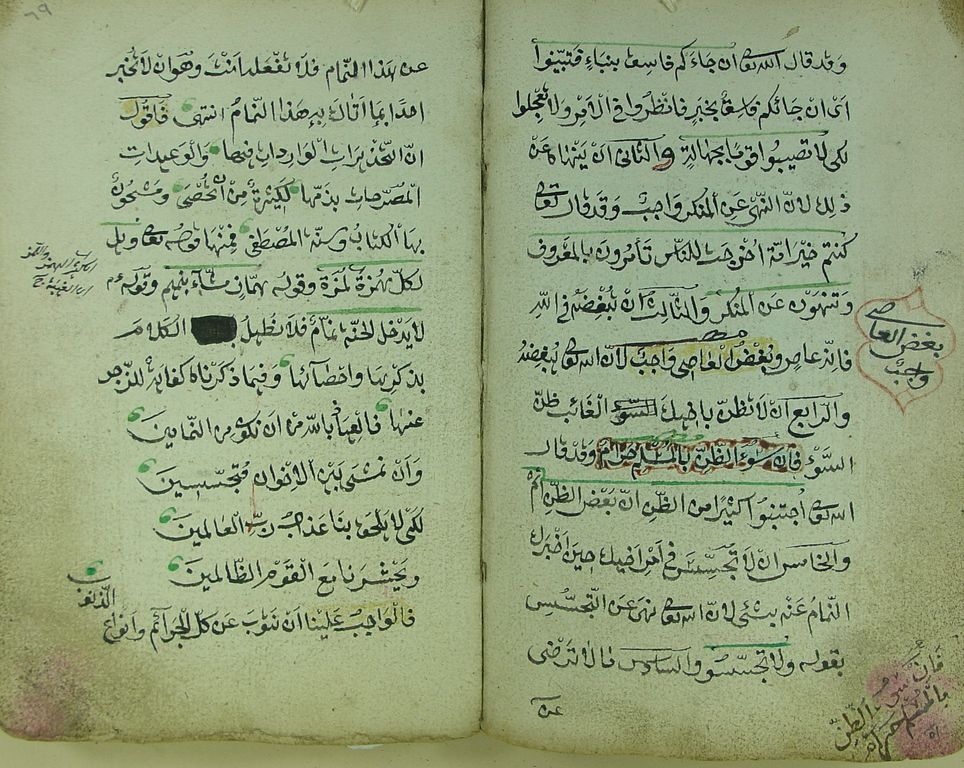 وقد قال الله تعالى ان جاءكم فاسق بنباء فتبينوا
اى ان جائكم فاسق بخبر فانظروا فى الامر ولا تعجلوا
لكى لا تصيبوا قوما بجهالة والثانى ان ينهاه عن
ذلك لان النهى عن المنكر واجب وقد قال تعالى
كنتم خير امة اخرجت للناس تأمرون بالمعروف
وتنهون عن المنكر والثالث ان تبغضه فى الله
فانه عاص وبغض العاصى واجب لان الله تعالى يبغضه
والرابع ان لا تظن باخيك السوء الغائب ظن
السوء فان سوء الظن بالمسلم حرام وقد قال
الله تعالى اجتنبوا كثيرا من الظن ان بعض الظن اثم
والخامس ان لا تجسس فى امر اخيك حين اخبرك
النمام عنه بشئ لان الله تعالى نهى عن التجسس
بقوله ولا تجسسو والسادس مالا ترضى
عن
بغض العاصى
واجب
فان سوء الظن
بالمسلم حرام
٦٩
عن هذا النمام فلا تفعله انت وهو ان لا تخبر
احدا بما اتاك به هذا النمام انتهى فاقول
ان التحذيرات الواردات فيها والوعيدات
المصرحات بذمها لكثيرة من ان تحصى ومشحون
بها الكتاب وسنة المصطفى فمنها قوله تعالى ويل
لكل همزة لمزة وقوله همان مشاء بنميم وقوله عم
لا يدخل الجنة نمام فلا نطيل الكلام
بذكريها واحصائها وفيما ذكرناه كفاية للزجر
عنها فالعياذ بالله من ان نكون من النمامين
وان نمشى بين الاخوان متجسسين
لكى لا يلحق بنا عذاب رب العالمين
ويحشرنا مع القوم الظالمين
فالواجب علينا ان نتوب عن كل الجرائم وانواع
الذنوب